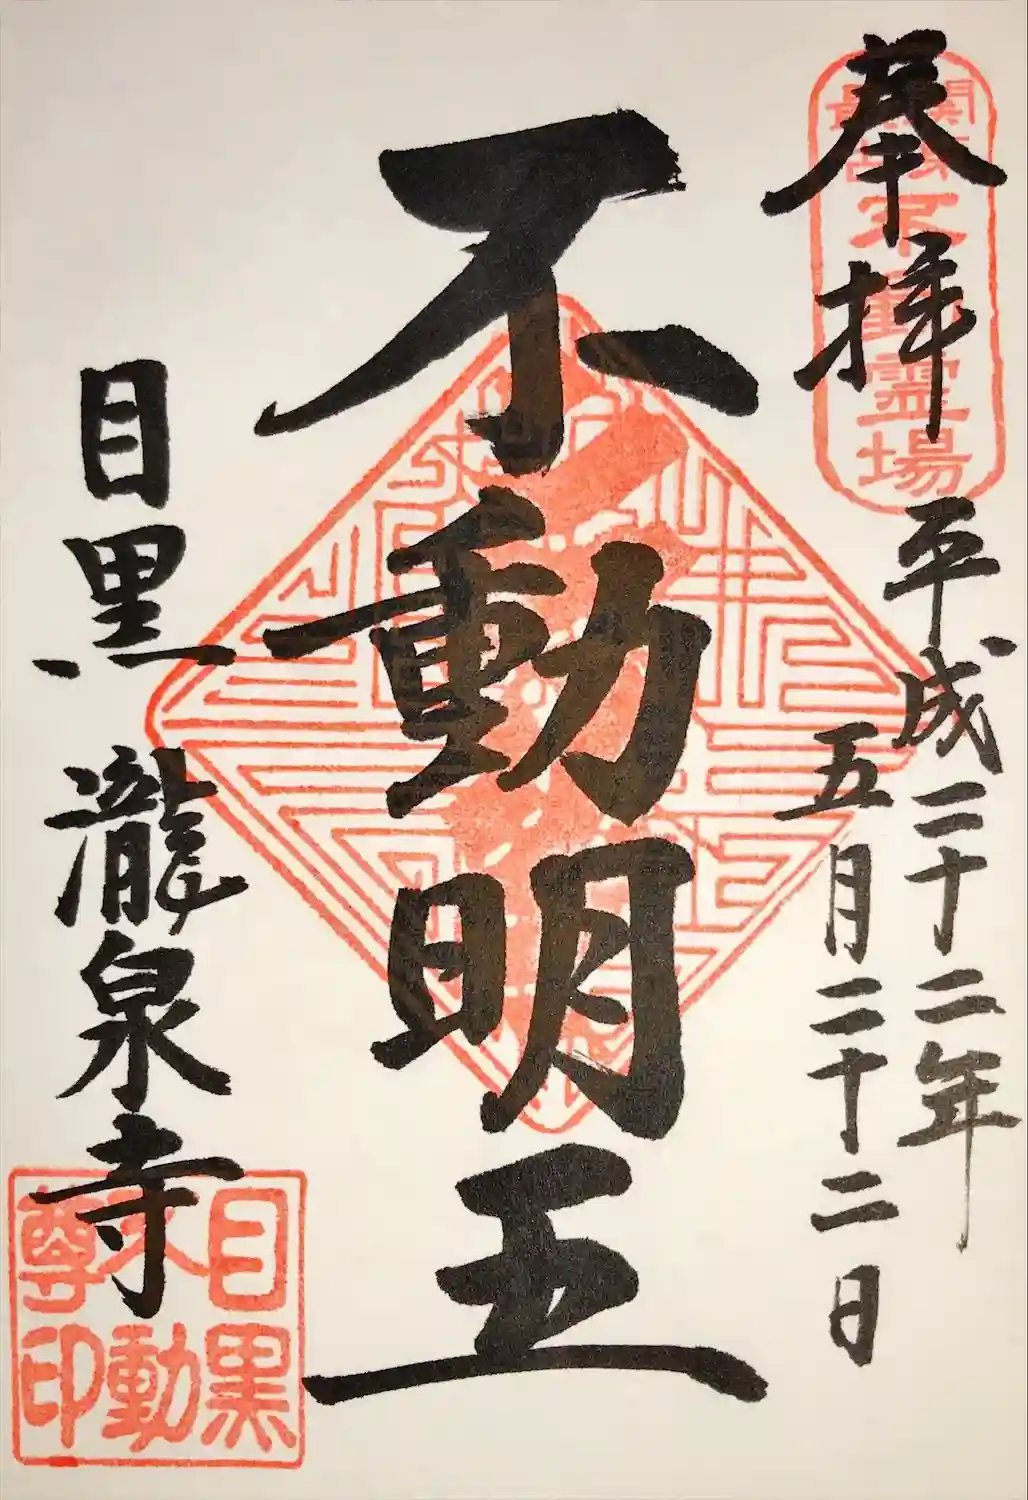 奉拝
関東最古不動霊場
平成二十二年
五月二十二日
不動明王
目黒 瀧泉寺
目黒
不動
尊印